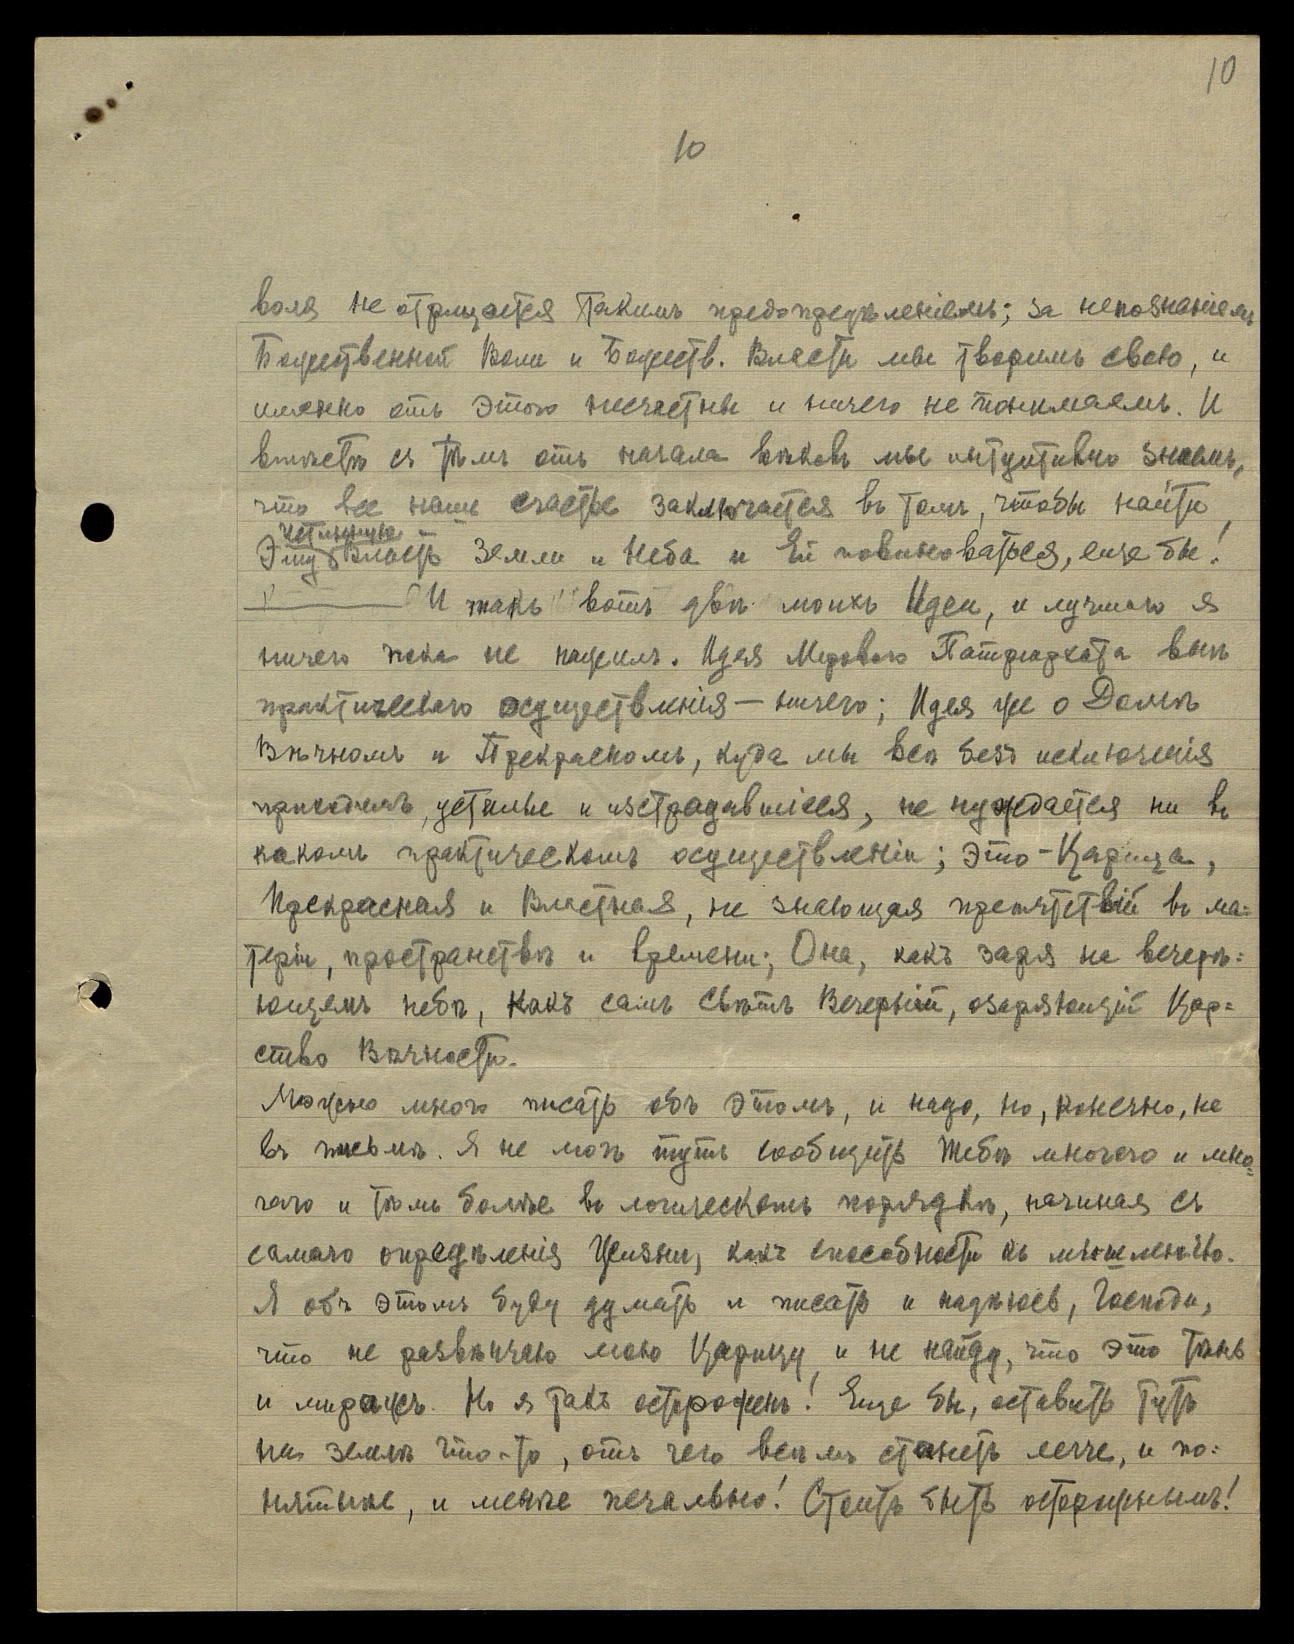 10
10
воля не отрицается такимъ предопредѣленіемъ; за непознаніемъ
Божественной Воли и Божеств. Власти мы творимъ свою, и
именно отъ этого несчастны и ничего не понимаемъ. И
вмѣстѣ съ тѣмъ отъ начала вѣковъ мы интуитивно знаемъ,
что все наше счастье заключается въ томъ, чтобы найти
истинную
Эту Власть Земли и Неба и Ей повиноваться, еще бы!
И такъ вотъ двѣ моихъ Идеи, и лучшаго я
ничего пока не нашелъ. Идея Мірового Патріархата внѣ
практическаго осуществленія — ничего; Идея же о Домѣ
Вѣчномъ и Прекрасномъ, куда мы всѣ безъ исключенія
приходимъ, усталые и изстрадавшіеся, не нуждается ни въ
какомъ практическомъ осуществленіи; это - Царица,
Прекрасная и Властная, не знающая препятствій въ ма=
теріи, пространствѣ и времени; Она, какъ заря на вечерѣ=
ющемъ небѣ, какъ самъ Свѣтъ Вечерній, озаряющій Цар=
ство Вѣчности.
Можно много писать объ этомъ, и надо, но, конечно, не
въ письмѣ. Я не могъ тутъ сообщить Тебѣ многаго и мно=
гаго и тѣмъ болѣе въ логическомъ порядкѣ, начиная съ
самаго опредѣленія Жизни, какъ способности къ мышленію.
Я объ этомъ буду думать и писать и надѣюсь, Господи,
что не развѣнчаю мою Царицу и не найду, что это тѣнь
и миражъ. Но я такъ остороженъ! Еще бы, оставить тутъ
на землѣ что-то, отъ чего всѣмъ станетъ легче, и по=
нятнѣе, и менѣе печально! Стоитъ быть осторожнымъ!